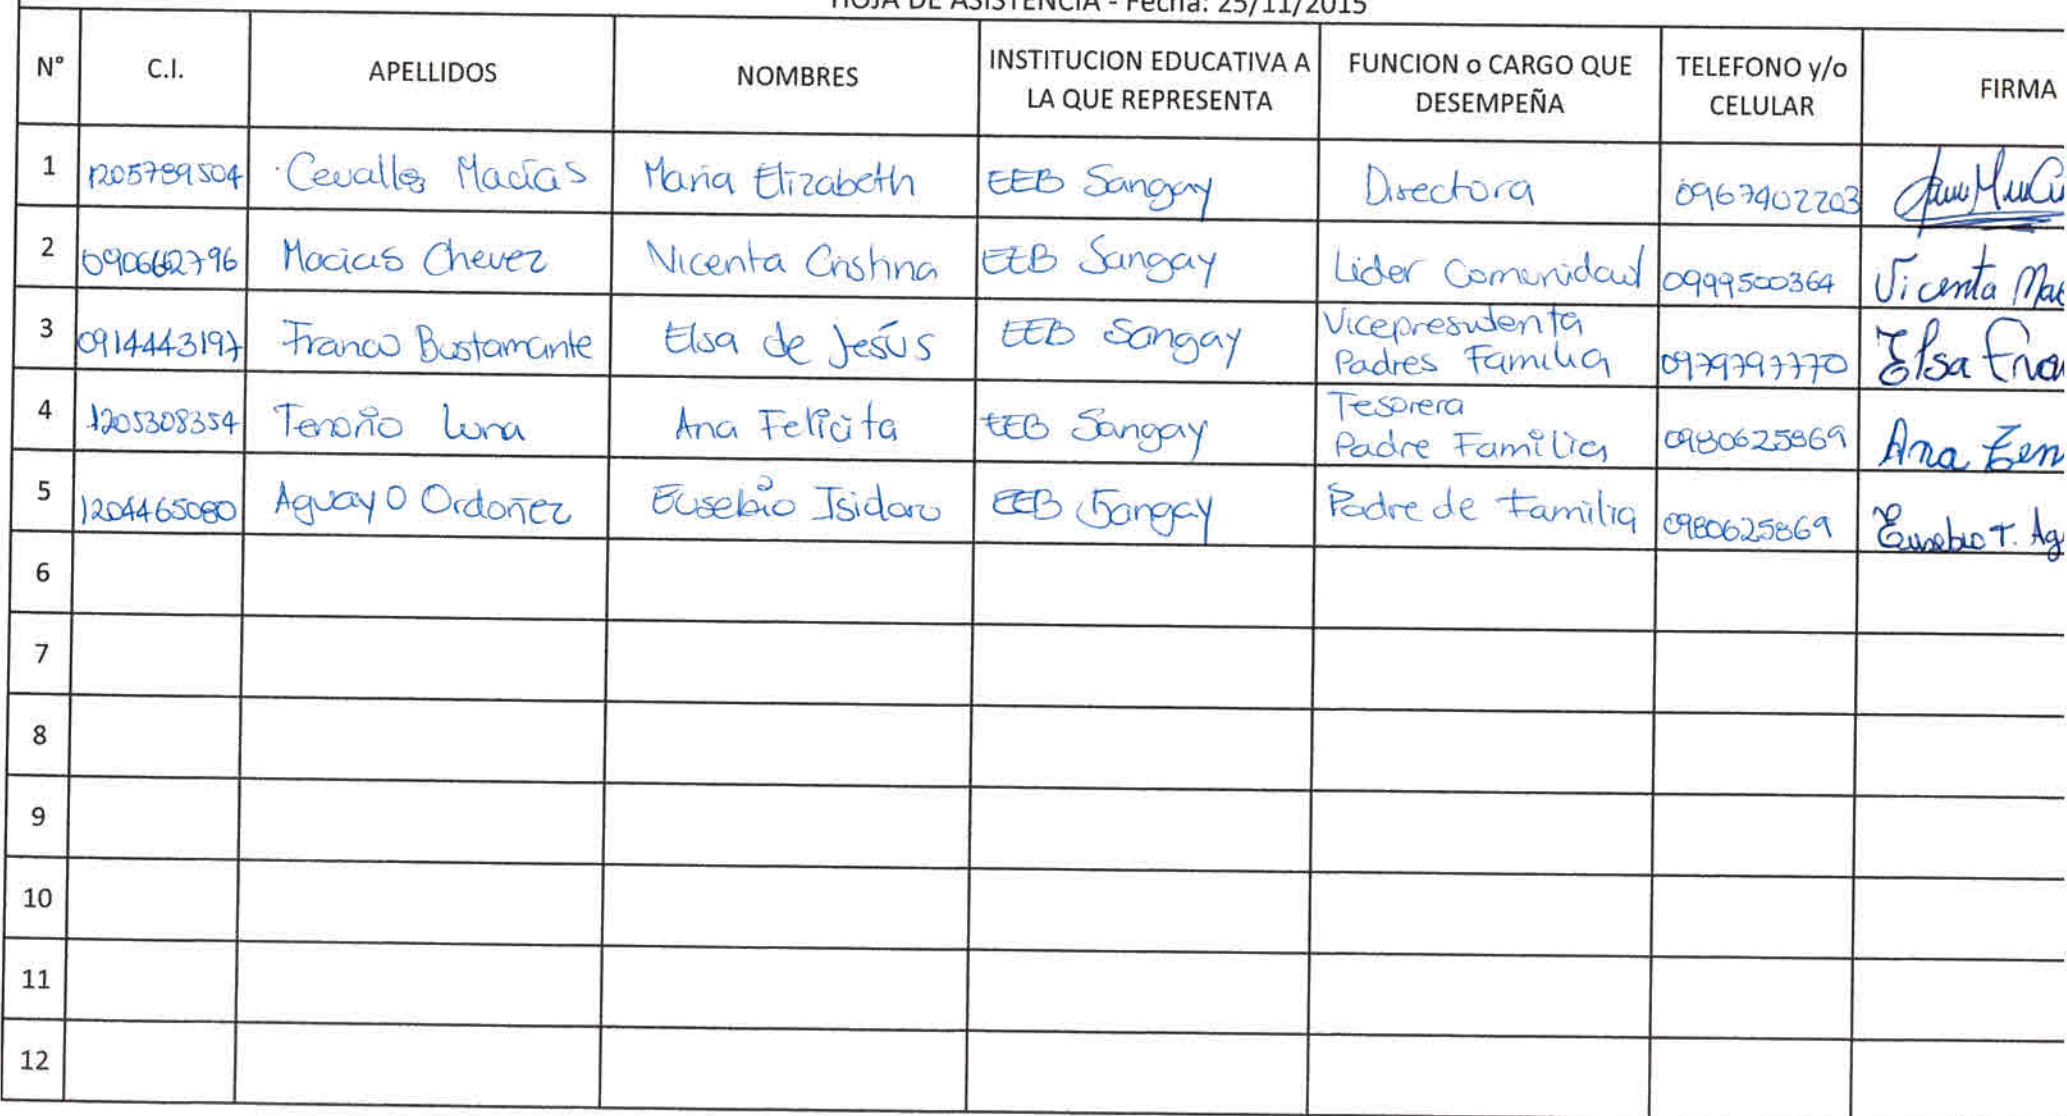 HOJA DE ASISTENCIA - Fecha: 25/11/2015
N° C.I. APELLIDOS NOMBRES INSTITUCION EDUCATIVA A LA QUE REPRESENTA FUNCION o CARGO QUE DESEMPEÑA TELEFONO y/o CELULAR FIRMA
1 1205789504 Cevallos Macías María Elizabeth EEB Sangay Directora 0967902203
2 0906662796 Macias Chevez Vicenta Cristina EEB Sangay Lider Comunidad 0999500364 Vicenta Mac
3 0914443197 Franco Bustamante Elsa de Jesús EEB Sangay Vicepresidenta Padres Familia 0979797770 Elsa Fran
4 1205308354 Tenorio Luna Ana Felicita EEB Sangay Tesorera Padre Familia 0980625869 Ana Ten
5 1204465080 Aguayo Ordoñez Eusebio Isidoro EEB Sangay Padre de Familia 0980625869 Eusebio I. Ag
6
7
8
9
10
11
12